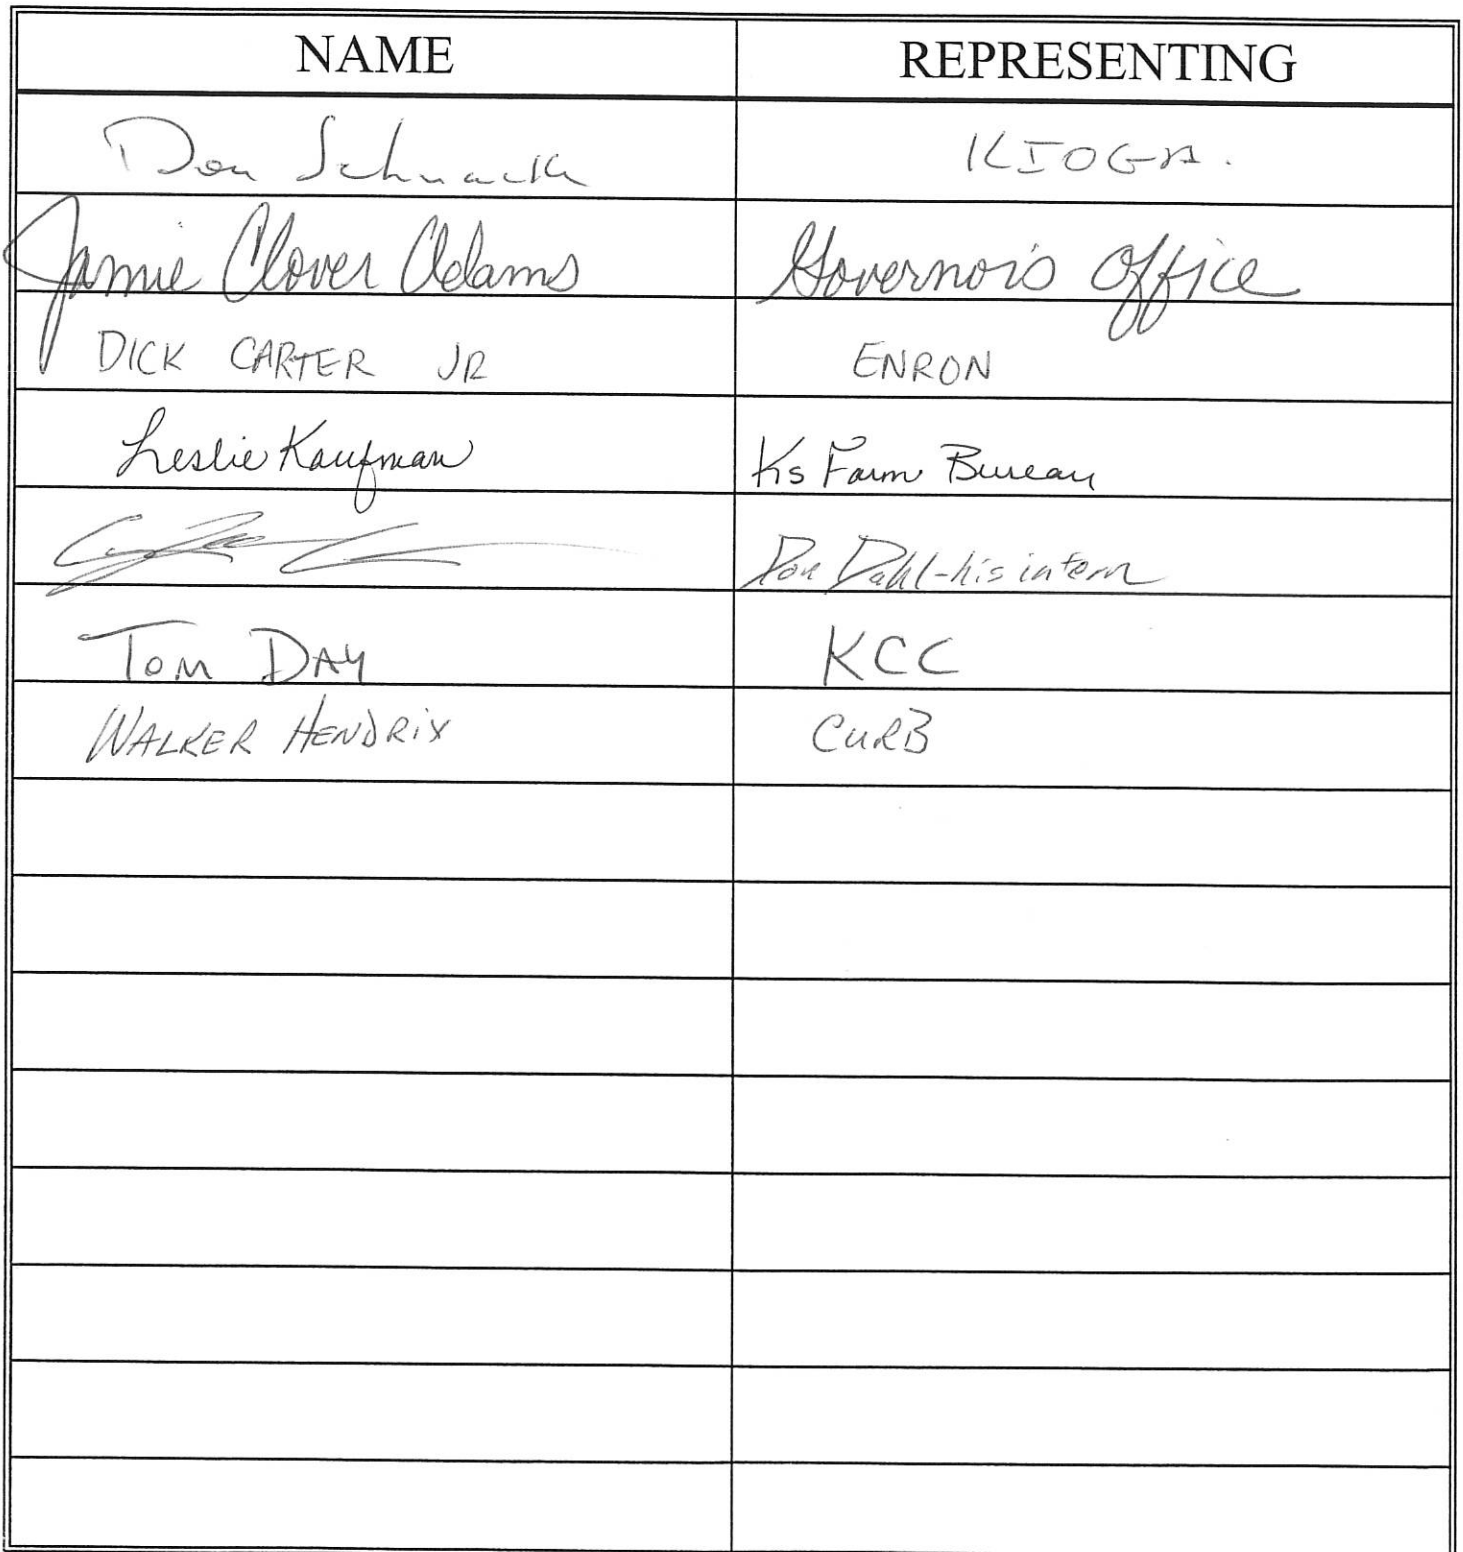 NAME REPRESENTING
Don Schnack KIOGA.
Jamie Clover Adams Governor's Office
DICK CARTER JR ENRON
Leslie Kaufman Ks Farm Bureau
Don Dahl - his intern
TOM DAY KCC
WALKER HENDRIX CURB